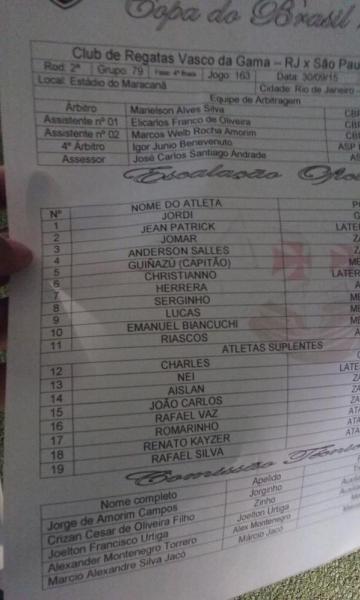 Copa do Brasil
Club de Regatas Vasco da Gama – RJ x São Pau
Rod: 2ª Grupo: 79 Fase: 4ª fase Jogo: 163 Data: 30/09/15
Local: Estádio do Maracanã Cidade: Rio de Janeiro -
Equipe de Arbitragem
Árbitro Marielson Alves Silva CB
Assistente nº 01 Elicarlos Franco de Oliveira CB
Assistente nº 02 Marcos Welb Rocha Amorim CB
4º Árbitro Igor Junio Benevenuto ASP
Assessor José Carlos Santiago Andrade ASP
Escalação Ofi
Nº NOME DO ATLETA P
1 JORDI
2 JEAN PATRICK LATER
3 JOMAR ZA
4 ANDERSON SALLES ZA
5 GUIÑAZU (CAPITÃO) ME
6 CHRISTIANNO LATE
7 HERRERA
8 SERGINHO ME
9 LUCAS ME
10 EMANUEL BIANCUCHI ME
11 RIASCOS ATA
ATLETAS SUPLENTES
12 CHARLES
13 NEI LATE
14 AISLAN ZA
15 JOÃO CARLOS ZA
16 RAFAEL VAZ ZA
17 ROMARINHO ATA
18 RENATO KAYZER ATA
19 RAFAEL SILVA ATA
Comissão Técni
Nome completo Apelido
Jorge de Amorim Campos Jorginho
Crizan Cesar de Oliveira Filho Zinho
Joelton Francisco Urtiga Joelton Urtiga
Alexander Montenegro Torrero Alex Montenegro
Marcio Alexandre Silva Jacó Márcio Jacó